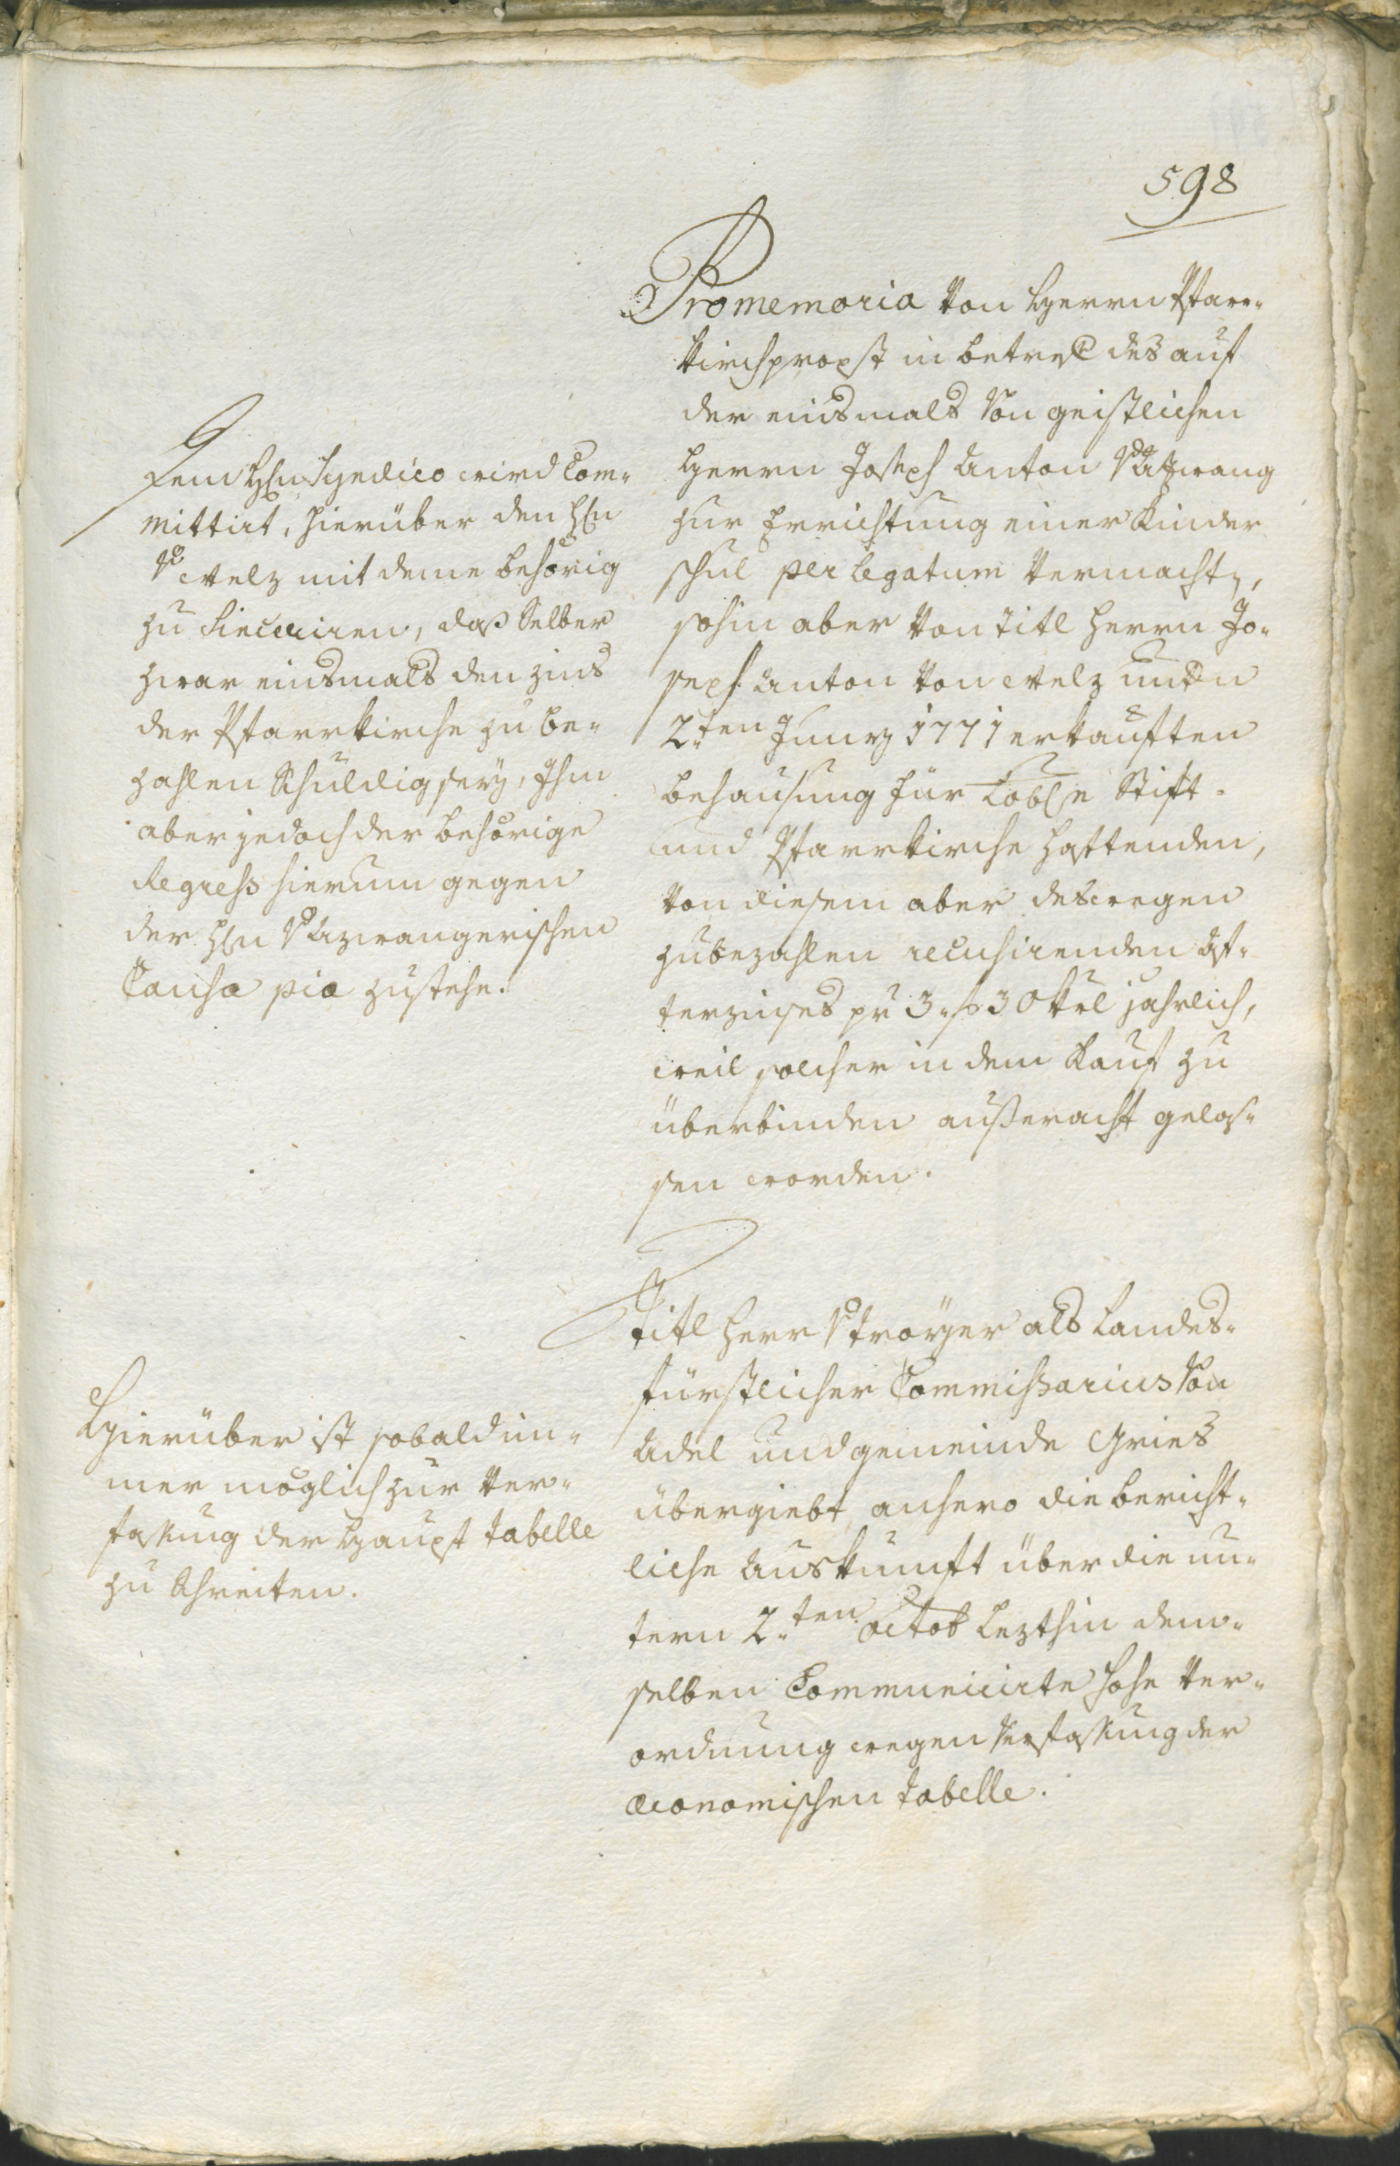 598
Promemoria von Herrn Pfarr-
kirchpropst in betref des auf
der einsmals von geistlichen
Herrn Joseph Anton v Azwang
zur Errichtung einer Kinder
schul per legatum vermachten,
sohin aber von Titl Herrn Jo-
seph Anton von Welz untern
2.ten Juny 1771 erkauften
behausung für Lobl.e Stift-
und Pfarrkirche haftenden,
von diesem aber deswegen
zubezahlen recusirenden Af-
terzinses pr 3 f 30 kr jahrlich,
weil solcher in dem Kauf zu
überbinden ausseracht gelas-
sen worden.
Dem H.n Syndico wird Com-
mittirt, hierüber den H.n
v Welz mit deme behörig
zu sinceriren, daß selber
zwar einsmals den zins
der Pfarrkirche zu be-
zahlen schuldig sey, Ihm
aber jedoch der behörige
Regress hierum gegen
der H.n v Azwangerischen
Causa pia zustehe.
Titl Herr v Troyer als Landes-
fürstlicher Commissarius von
Adel und gemeinde Gries
übergiebt anhero die bericht-
liche Auskunft über die un-
tern 2.ten Octob leztlich dem-
selben Communicirte hohe Ver-
ordnung wegen Verfassung der
œconomischen tabelle.
Hierüber ist sobald im-
mer möglich zur Ver-
fassung der Haupt tabelle
zu schreiten.